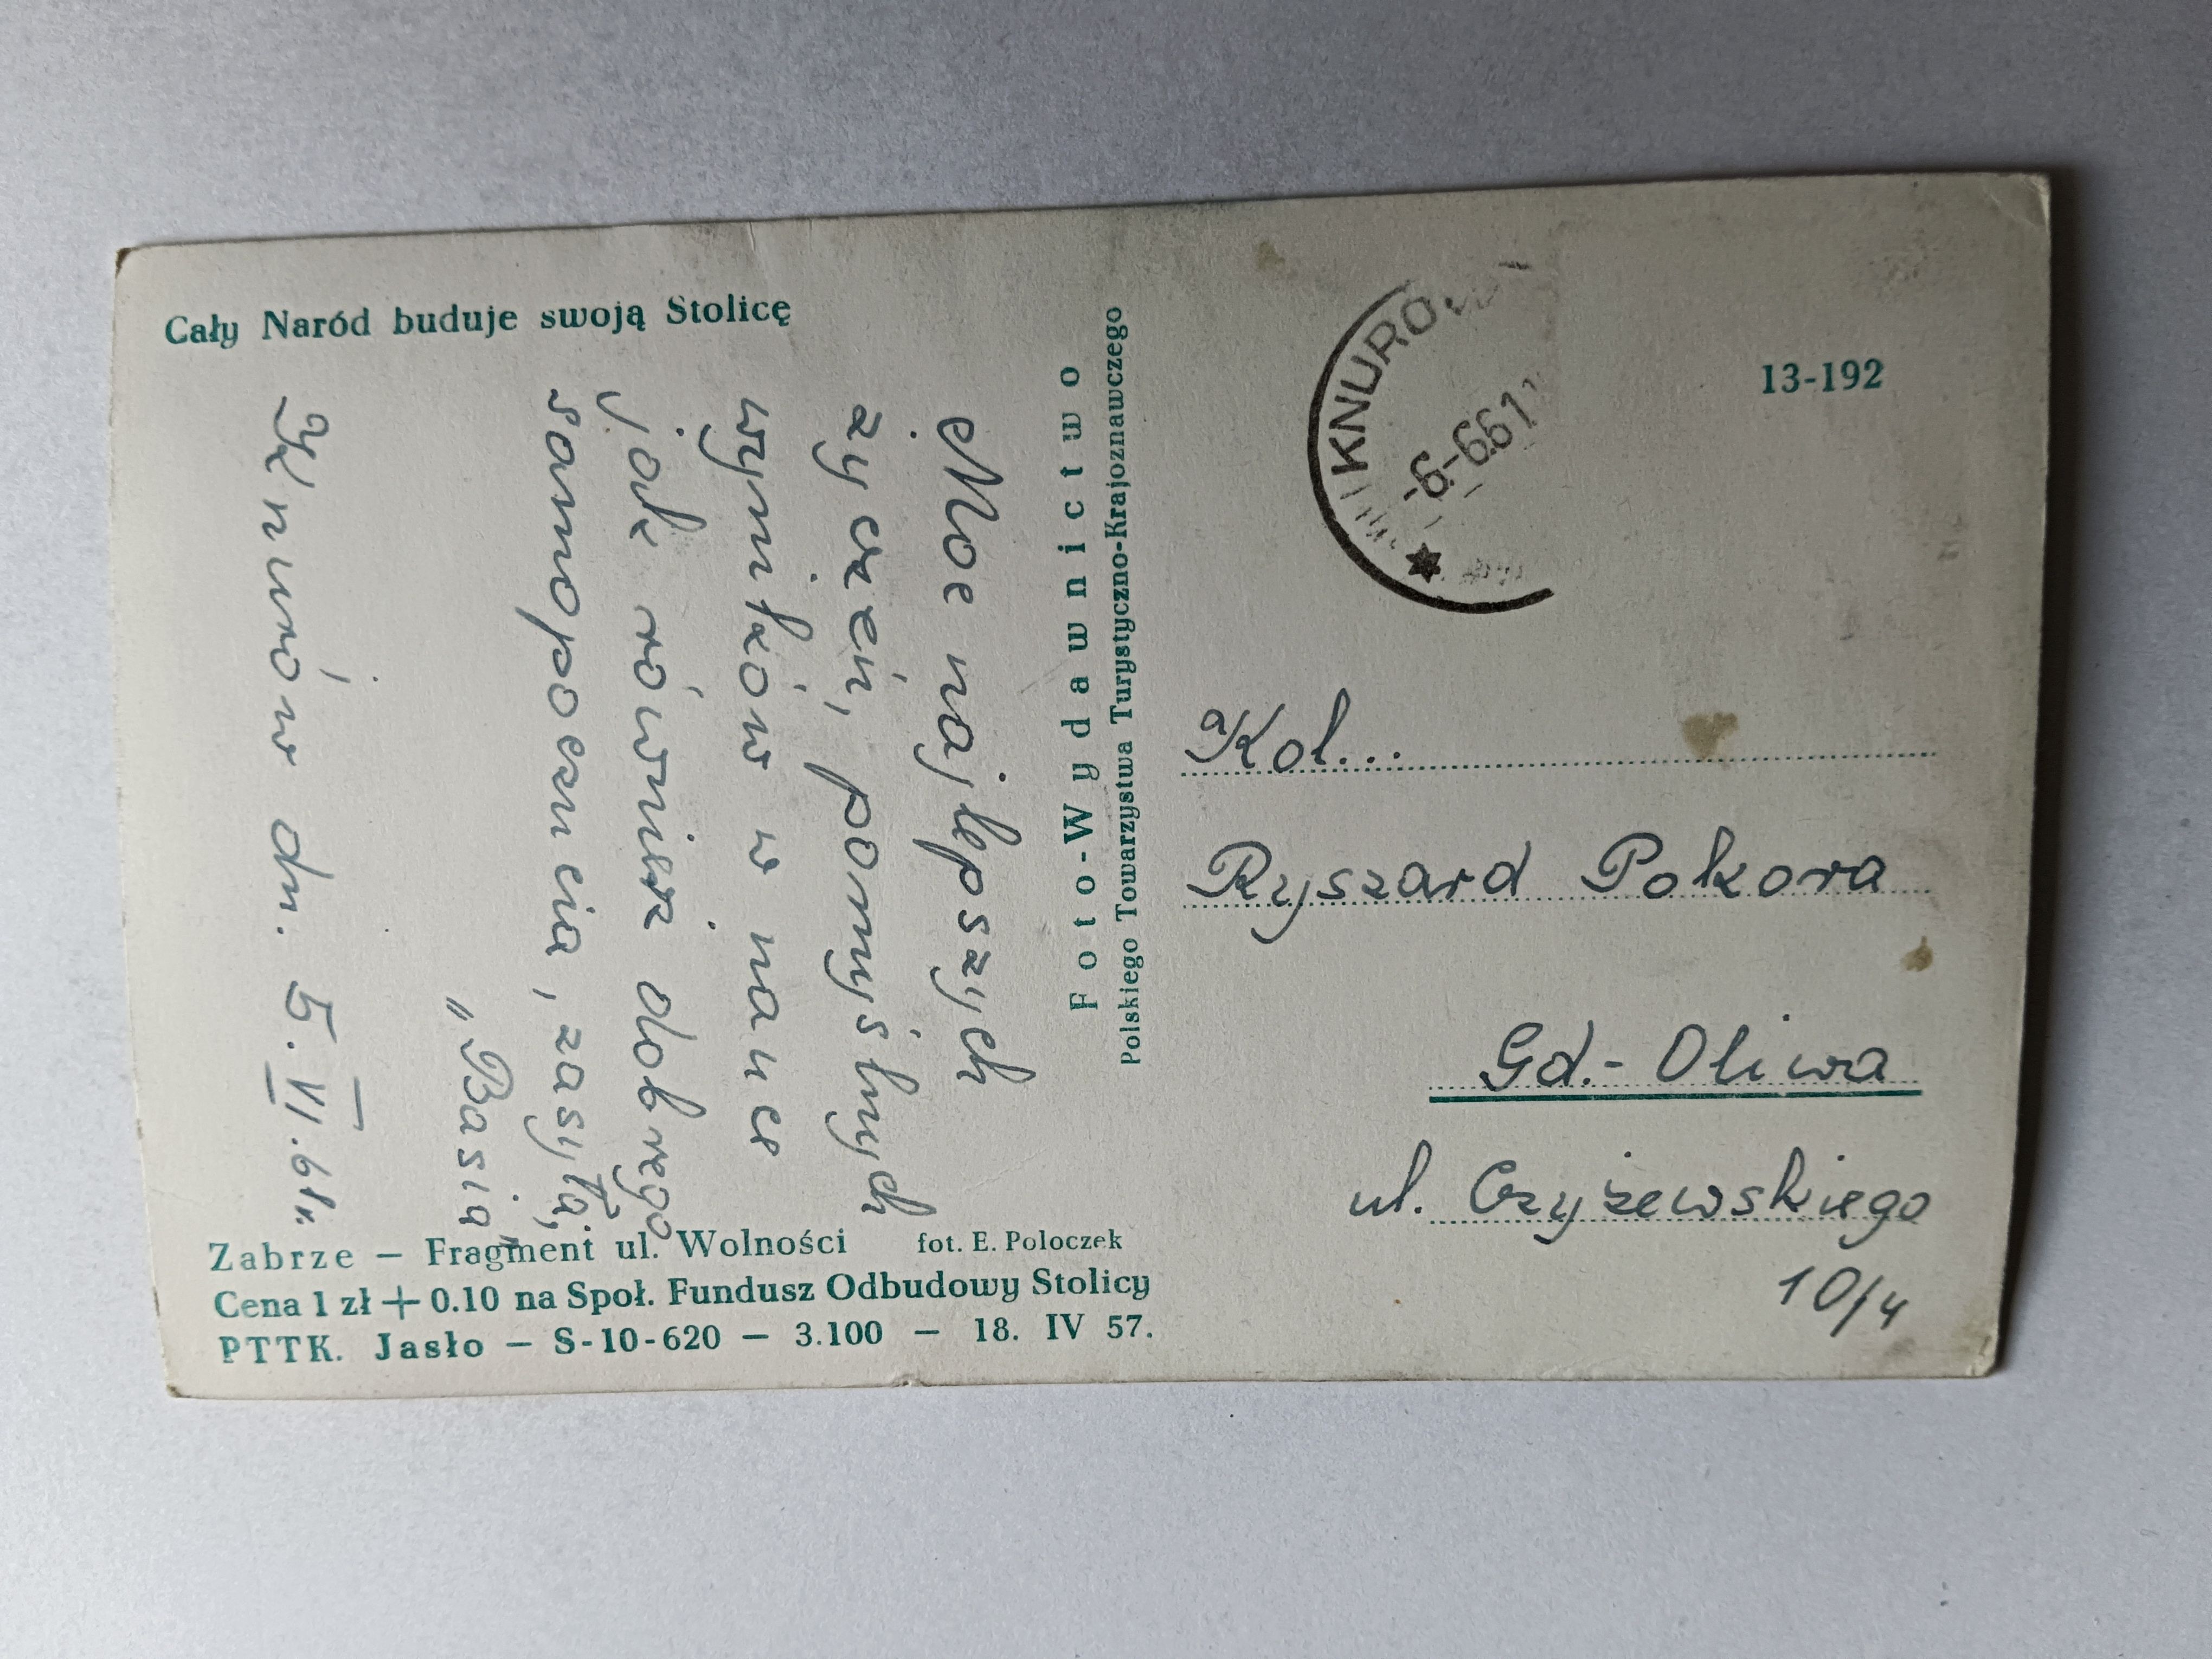 Cały Naród buduje swoją Stolicę
Moc najlepszych
życzeń, pomyślnych
wyników w nauce
jak również dobrego
samopoczucia, zasyła,
„Basia”
Knurów dn. 5.VI.61r.
Zabrze — Fragment ul. Wolności fot. E. Poloczek
Cena 1 zł + 0.10 na Społ. Fundusz Odbudowy Stolicy
PTTK. Jasło — S-10-620 — 3.100 — 18. IV 57.
Foto-Wydawnictwo
Polskiego Towarzystwa Turystyczno-Krajoznawczego
KNURÓW
-6.-6.61
13-192
Kol...
Ryszard Pokora
Gd.- Oliwa
ul. Czyżewskiego
10/4